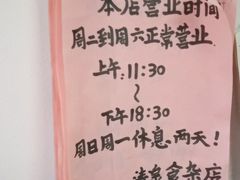 本店营业时间
周二到周六正常营业
上午:11:30
~
下午18:30
周日周一休息两天!
食杂店